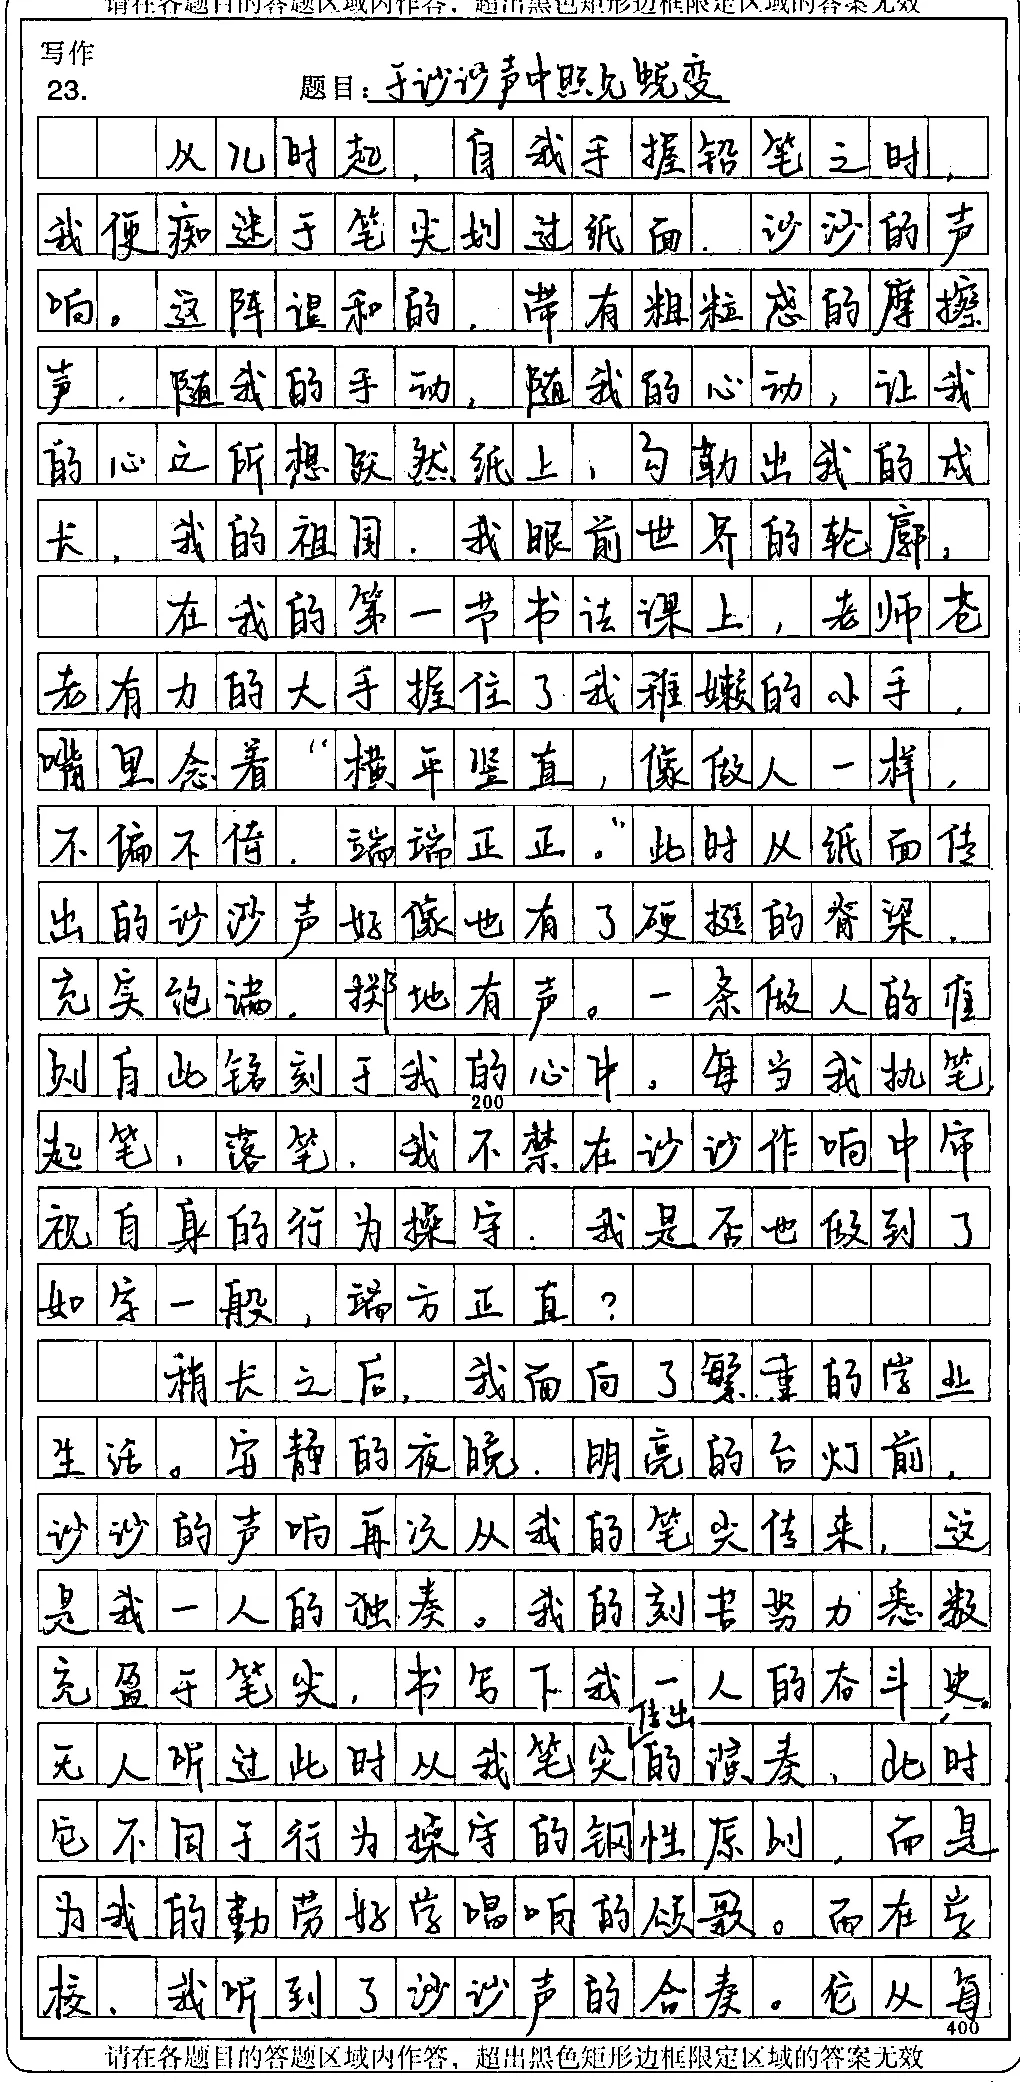 请在各题目的答题区域内作答，超出黑色矩形边框限定区域的答案无效
写作
23.
题目：于沙沙声中照见蜕变
从儿时起，自我手握铅笔之时，
我便痴迷于笔尖划过纸面，沙沙的声
响。这阵温和的，带有粗粒感的摩擦
声，随我的手动，随我的心动，让我
的心之所想跃然纸上，勾勒出我的成
长，我的祖国，我眼前世界的轮廓。
在我的第一节书法课上，老师苍
老有力的大手握住了我稚嫩的小手，
嘴里念着“横平竖直，像做人一样，
不偏不倚，端端正正。”此时从纸面传
出的沙沙声好像也有了硬挺的脊梁，
充实饱满，掷地有声。一条做人的准
则自此铭刻于我的心中。每当我执笔，
200
起笔，落笔，我不禁在沙沙作响中审
视自身的行为操守，我是否也做到了
如字一般，端方正直？
稍长之后，我面向了繁重的学业
生活。安静的夜晚，明亮的台灯前，
沙沙的声响再次从我的笔尖传来，这
是我一人的独奏。我的刻苦努力悉数
充盈于笔尖，书写下我一人的奋斗史。
无人听过此时从我笔尖传出的演奏，此时
它不同于行为操守的钢性原则，而是
为我的勤劳好学唱响的颂歌。而在学
校，我听到了沙沙声的合奏。它从每
400
请在各题目的答题区域内作答，超出黑色矩形边框限定区域的答案无效